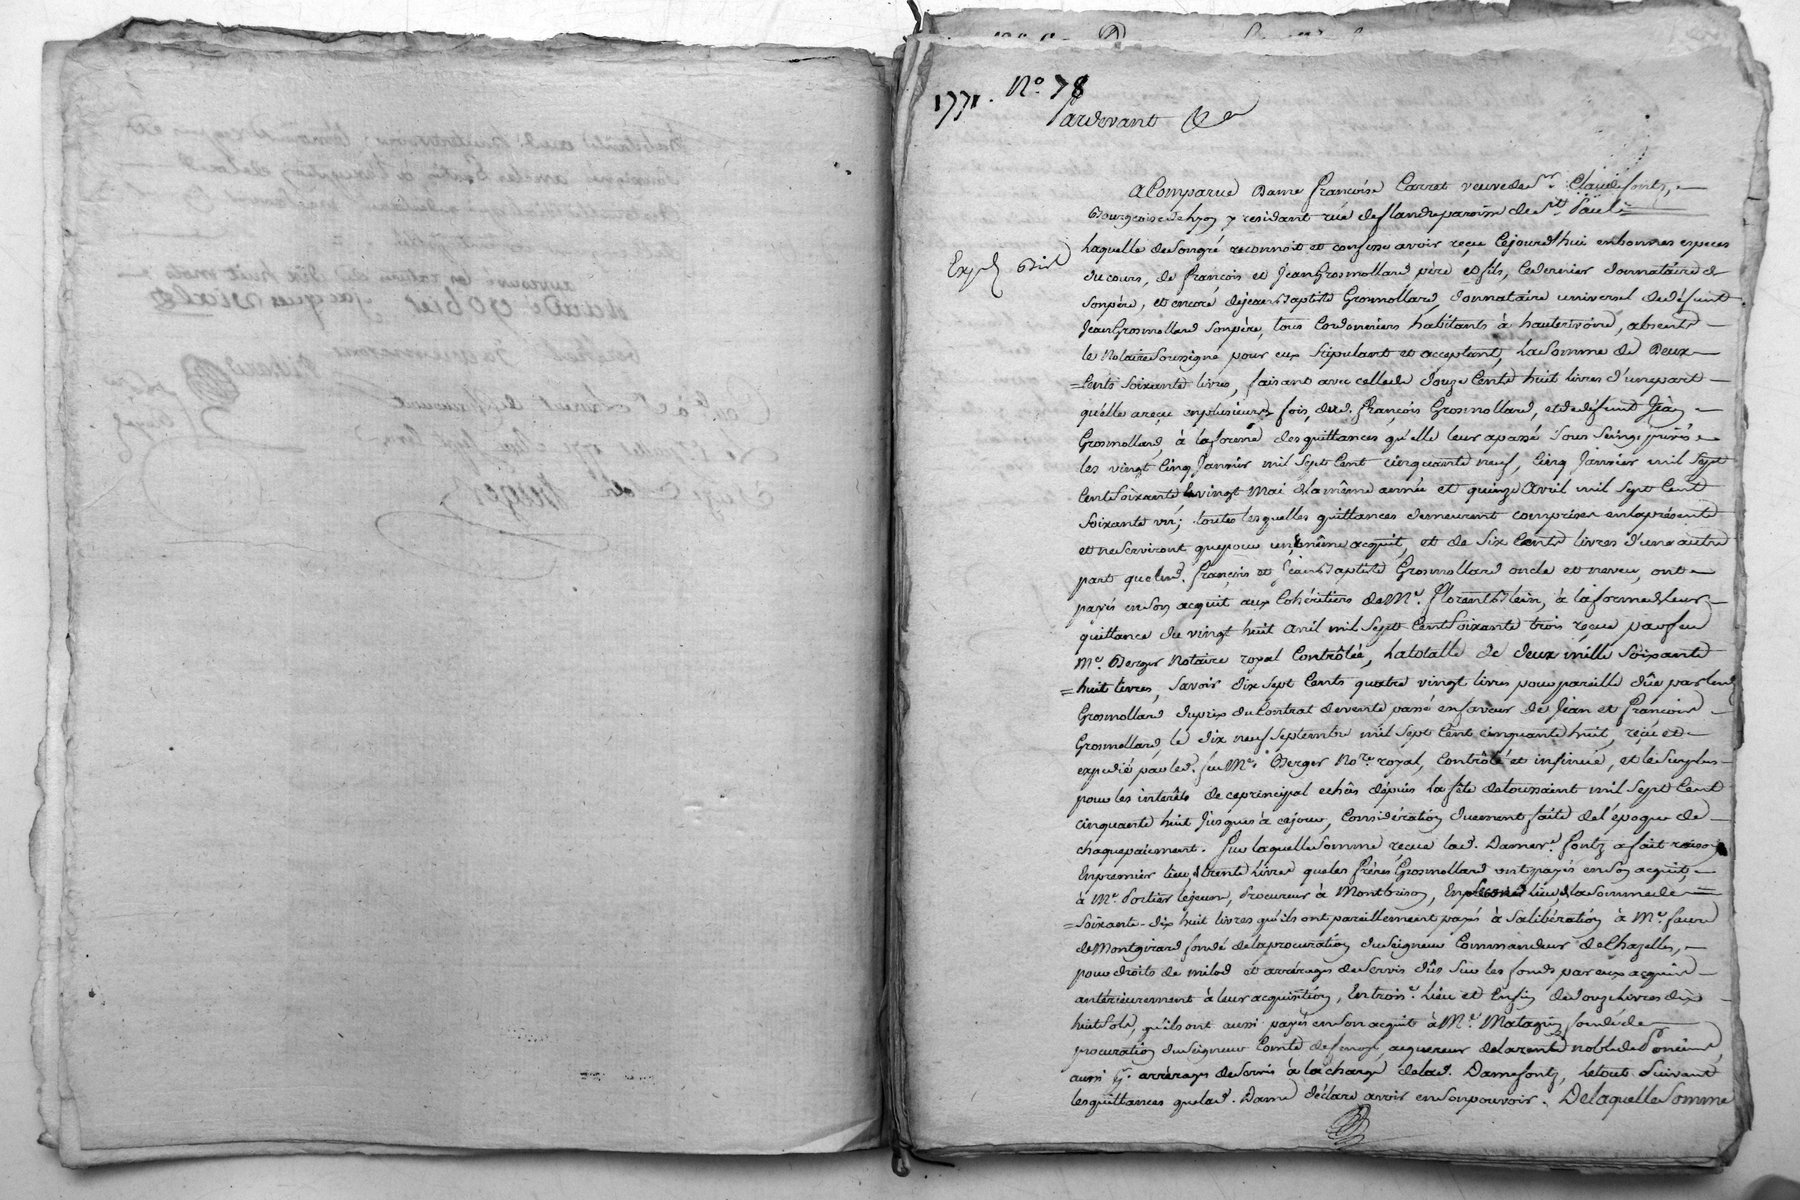 1771. N.º 78
Pardevant &
a Comparue Dame françoise Carret veuve de Sr. Claude fontz,
Bourgeoise de Lyon y residant rüe de flandre paroisse de St. Paul
laquelle de son gré reconnoit et confesse avoir reçu Cejourd'hui en bonnes especes
Exp.
du cours, de françois et Jean Grosmollard père et fils, Ce dernier donnataire de
son père, et encore de jean Baptiste Grosmollard, donnataire universel de défunt
Jean Grosmollard son père, tous Cordonniers habitants à hauterivoire, absents
le Notaire soussigné pour eux stipulant et acceptant, La somme de Deux
Cents soixante livres, faisant avec celle de douze Cents huit livres d'une part
qu'elle a reçu en plusieurs fois, dud. françois Grosmollard, et de défunt Jean
Grosmollard, à la forme des quittances qu'elle leur a passé sous seings privés
les vingt Cinq Janvier mil sept Cent cinquante neuf, Cinq Janvier mil sept
Cent soixante vingt Mai de la même année et quinze Avril mil sept Cent
soixante un; toutes lesquelles quittances demeurent comprises en la présente
et ne serviront que pour un même acquit, et de six Cents livres d'une autre
part que lesd. françois et jean Baptiste Grosmollard oncle et neveu, ont
payés en son acquit aux Cohéritiers de Me. florent Blein, à la forme de leur
quittance du vingt huit avril mil sept Cent soixante trois reçue par feu
Me. Berger Notaire royal Contrôlée, La totalle de deux mille soixante
huit livres, savoir dix sept Cents quatre vingt livres pour pareille düe par lesd.
Grosmollard du prix du Contrat de vente, passé en faveur de Jean et françois
Grosmollard, le dix neuf septembre mil sept Cent cinquante huit, reçu et
expedié par led. feu Me. Berger Nore. royal, Contrôlé et insinué, et le surplus
pour les interêts de ce principal echûs dépuis la fête de toussaint mil sept Cent
cinquante huit Jusques à ce jour, Considération duement faite de l'époque de
chaque paiement. Sur laquelle somme reçue lad. Dame ve. fontz a fait raison
En premier lieu de trente livres que les frères Grosmollard ont payés en son acquit,
à Me. Portier le jeune, Procureur à Montbrison, En second lieu, de la somme de
soixante-dix huit livres qu'ils ont pareillement payés à sa libération à Me. faure
de Montgirard fondé de la procuration du seigneur Commandeur de Chazelles,
pour droits de milod et arrérages de servis dûs sur les fonds par eux acquis
antérieurement à leur acquisition, En trois.e Lieu et Enfin de douze livres dix
huit sols, qu'ils ont aussi payés en son acquit à Me. Matagrin fondé de
procuration du seigneur Comte de acquereur de la rente noble de
aussi pr. arrérages de servis à la charge de lad. Dame fontz, Le tout suivant
les quittances que lad. Dame déclare avoir en son pouvoir. De laquelle Somme